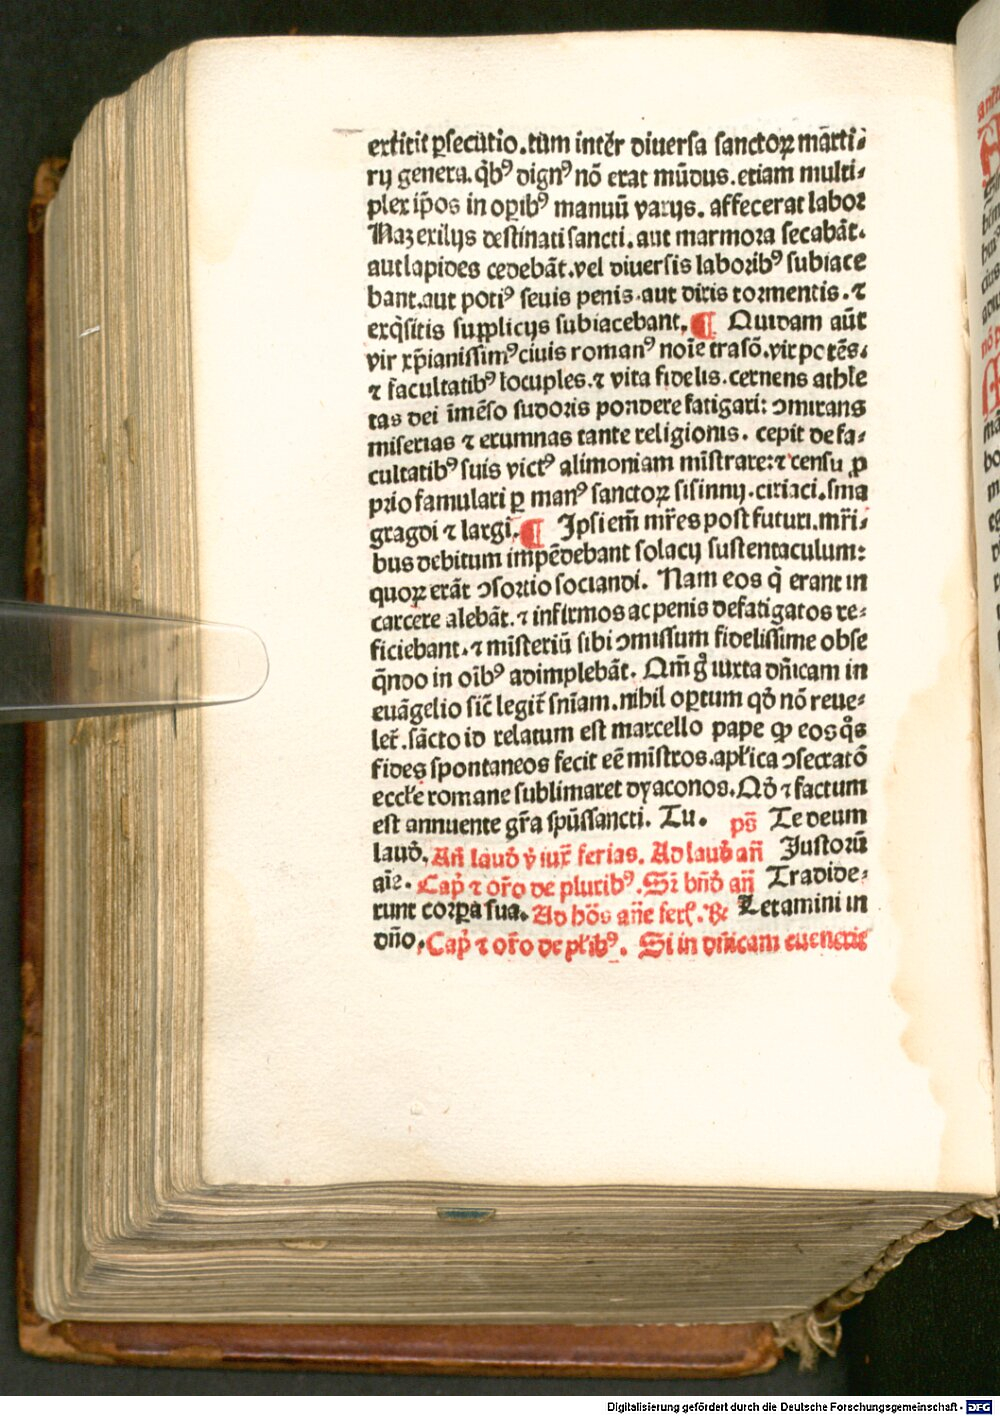 extitit ꝑsecutio.tūm inter̄ diuersa sanctoꝝ mārti⸗
rij genera.q̄bꝰ dignꝰ nō erat mūdus.etiam multi⸗
plex ip̄os in oꝑibꝰ manuū varijs. affecerat labor
Naz exilijs destinati sancti.aut marmora secabāt.
aut lapides cedebāt.vel diuersis laboribꝰ subiace
bant.aut potiꝰ seuis penis.aut diris tormentis.⁊
exq̄sitis supplicijs subiacebant. ¶ Quidam aūt
vir xp̄ianissimꝰ ciuis romanꝰ noīe trasō.vir potēs.
⁊ facultatibꝰ locuples.⁊ vita fidelis.cernens athle
tas dei īmēso sudoris pondere fatigari: ɔmirans
miserias ⁊ erumnas tante religionis. cepit de fa⸗
cultatibꝰ suis victꝰ alimoniam mīstrare:⁊ censu ꝓ
prio famulari ꝑ manꝰ sanctoꝝ sisinnij.ciriaci.sma
gragdi ⁊ largi. ¶ Ipsi em̄ mr̄es post futuri.mr̄i⸗
bus debitum impēdebant solacij sustentaculum:
quoꝝ erāt ɔsortio sociandi. Nam eos q̄ erant in
carcere alebāt.⁊ infirmos ac penis defatigatos re⸗
ficiebant.⁊ mīsteriū sibi ɔmissum fidelissime obse
q̄ndo in oībꝰ adimplebāt. Qm̄ gͦ iuxta dn̄icam in
euāgelio sic̄ legit̄ sn̄iam.nihil oꝑtum qd̄ nō reue⸗
let̄.sācto id relatum est marcello pape ꝙ eos qͦs
fides spontaneos fecit eē mīstros.apl̄ica ɔsecratō
eccl̄e romane sublimaret dyaconos.Qd̄ ⁊ factum
est annuente gr̄a spūssancti. Tu. ps̄ Te deum
laud̄. An̄ laud̄ v̄ iux̄ ferias. Ad laud̄ an̄ Iustorū
aīe. Cap̄ ⁊ or̄o de pluribꝰ. Si bn̄d̄ an̄ Tradide⸗
runt corꝑa sua. Ad hōs an̄e ferl̄. Letamini in
dn̄o. Cap̄ ⁊ or̄o de pl̄ibꝰ. Si in dn̄icam euenerit
Digitalisierung gefördert durch die Deutsche Forschungsgemeinschaft - DFG